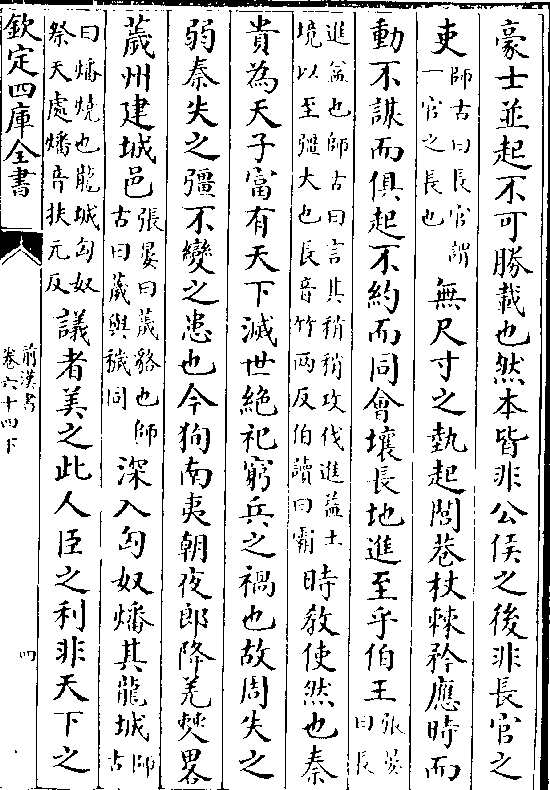 豪士並起不可勝載也然本皆非公侯之後非長官之
吏師古曰長官謂一官之長也無尺寸之埶起閭巷杖棘矜應時而
動不謀而俱起不約而同會壤長地進至乎伯王張晏曰長
進益也師古曰言其稍稍攻伐進益土境以至彊大也長音竹兩反伯讀曰霸時教使然也秦
貴為天子富有天下滅世絶祀窮兵之禍也故周失之
弱秦失之彊不變之患也今徇南夷朝夜郎降羌僰畧
薉州建城邑張晏曰薉貉也師古曰薉與穢同深入匈奴燔其龍城師古
曰燔燒也龍城匈奴祭天處燔音扶元反議者美之此人臣之利非天下之
欽定四庫全書
前漢書
卷六十四下
四